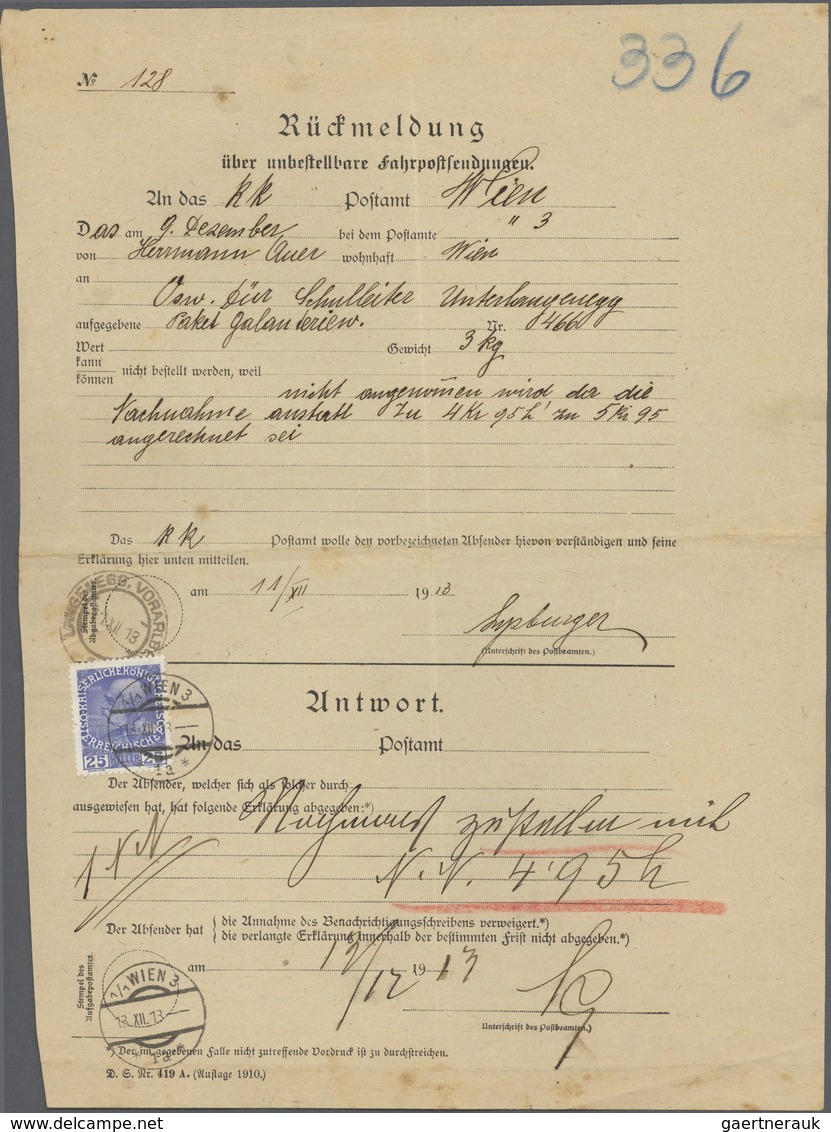 336
No 128
Rückmeldung
über unbestellbare Fahrpostsendungen.
An das KK Postamt Wien
Das am 9. Dezember bei dem Postamte " 3
von Herrmann Auer wohnhaft Wien
an
Osw. Für Schulleiter Unterlangenegg
aufgegebene Paket Galanteriew. Nr. 466
Wert Gewicht 3 kg
kann
können nicht bestellt werden, weil
nicht angenommen wird der die
Nachnahme anstatt zu 4 Kr 95 h zu 5 Kr 95
angerechnet sei
Das KK Postamt wolle den vorbezeichneten Absender hievon verständigen und seine
Erklärung hier unten mitteilen.
am 11/XII 1913
Stempel des
Abgabepostamtes.
LANGENEGG, VORARLB
XII 13
(Unterschrift des Postbeamten.)
Antwort.
KAISERLICHE KÖNIGLICHE
ÖSTERREICHISCHE POST
25 HELLER 25
1/1 WIEN 3
13.XII.13
1a *
An das Postamt
Der Absender, welcher sich als solcher durch
ausgewiesen hat, hat folgende Erklärung abgegeben:*)
Nochmals zustellen mit
N. N. 4'95 h
Der Absender hat { die Annahme des Benachrichtigungsschreibens verweigert.*)
{ die verlangte Erklärung innerhalb der bestimmten Frist nicht abgegeben.*)
am 13/12 1913
Stempel des
Aufgabepostamtes.
1/1 WIEN 3
13.XII.13
1a *
Unterschrift des Postbeamten.)
*) Der im gegebenen Falle nicht zutreffende Vordruck ist zu durchstreichen.
D. S. Nr. 419 A. (Auflage 1910.)
gaertnerauk